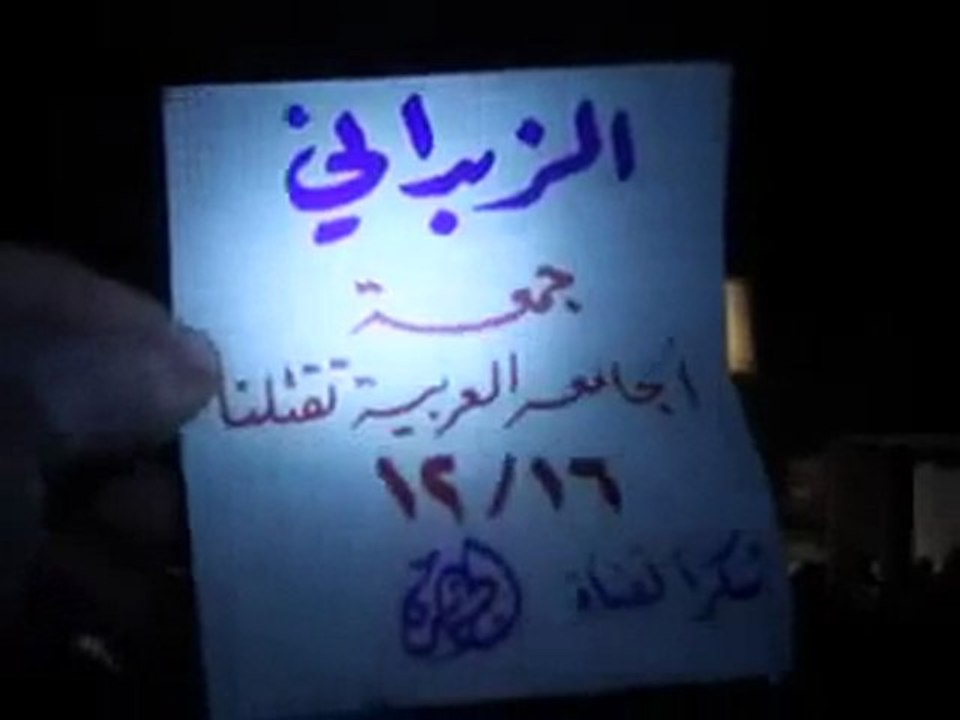 الزبداني
جمعة
الجامعه العربية تقتلنا
١٦/١٢
شكرا لقناة الجزيرة